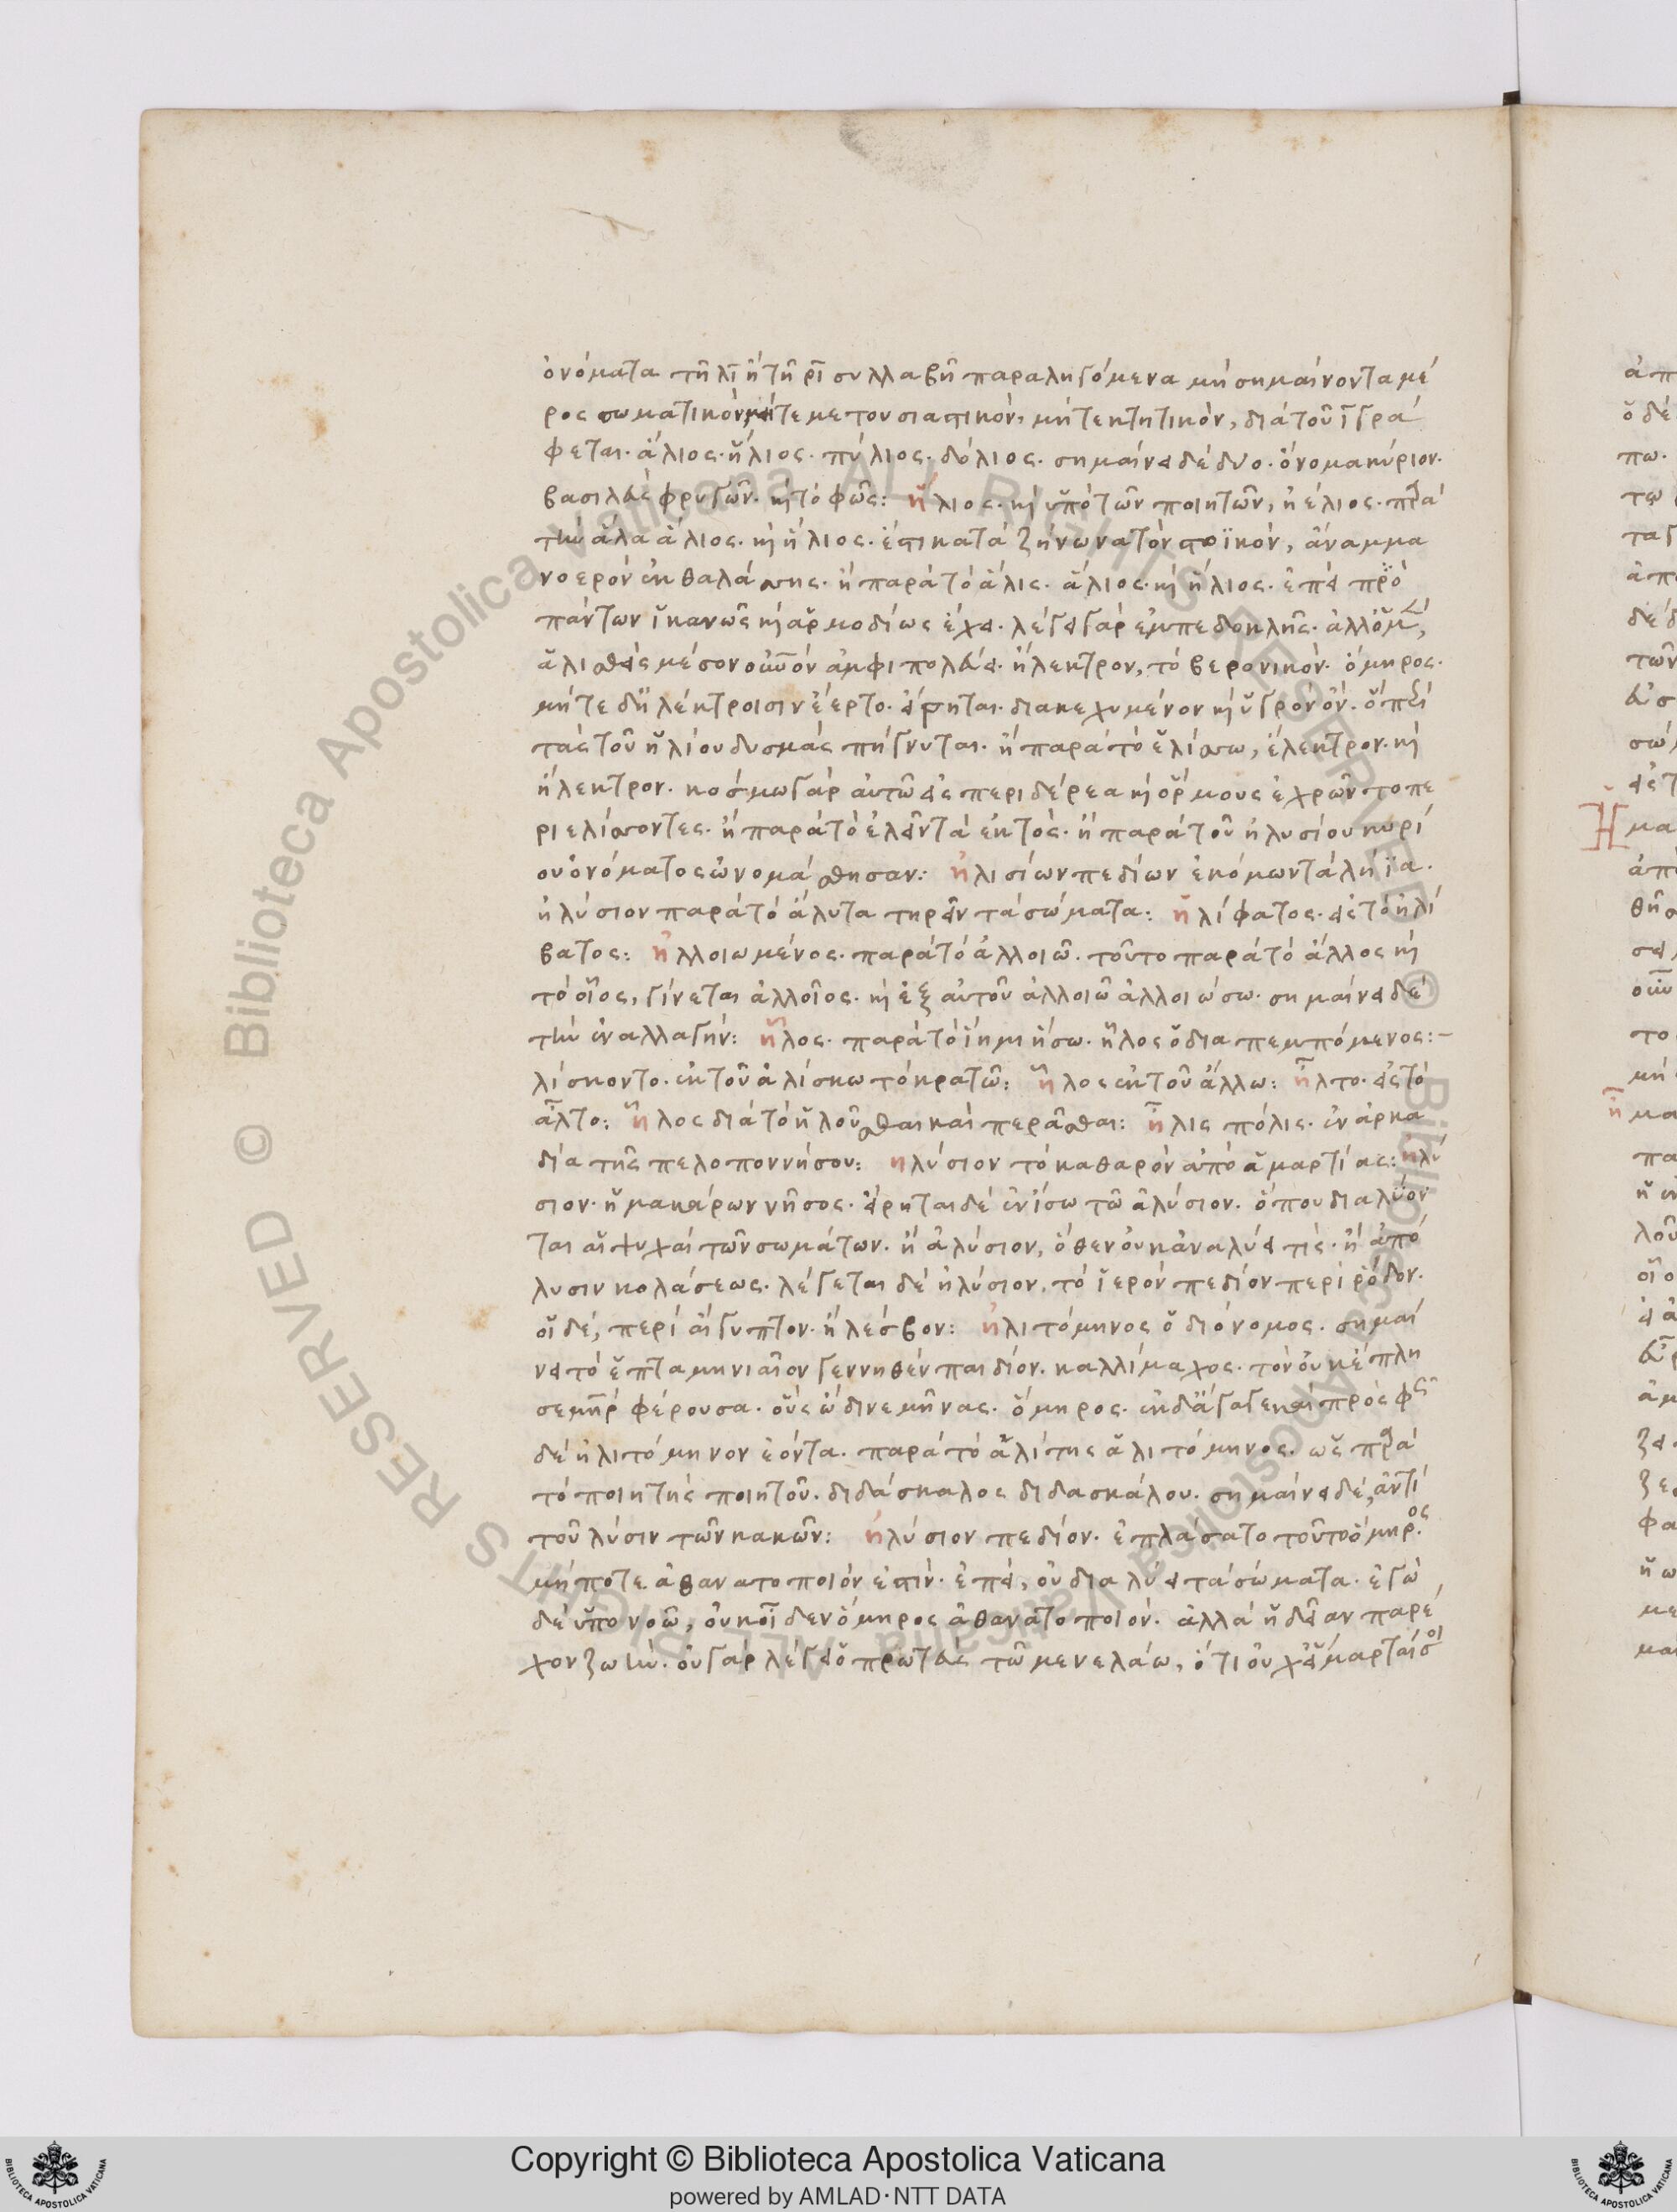 ὀνόματα τῆ λῑ ἢ τῆ ρῑ συλλαβῆ παραληγόμενα μὴ σημαίνοντα μέ
ρος σωματικὸν, μήτε μετουσιαστικὸν, μήτε κτητικὸν, διὰ τοῦ ῑ γρά
φεται. ἅλιος. ἥλιος. πύλιος. δόλιος. σημαίνει δὲ δύο. ὄνομα κύριον.
βασιλεὺς φρυγῶν. καὶ τὸ φῶς: ἥλιος. καὶ ὑπὸ τῶν ποιητῶν, ἠέλιος. παρὰ
τὴν ἅλα ἅλιος. καὶ ἥλιος. ἐστι κατὰ ζήνωνα τὸν στοϊκὸν, ἄναμμα
νοερὸν ἐκ θαλάσσης. ἢ παρὰ τὸ ἅλις. ἅλιος. καὶ ἥλιος. ἐπεὶ πρὸ
πάντων ἱκανῶς καὶ ἁρμοδίως ἔχει. λέγει γὰρ ἐμπεδοκλῆς. ἀλλ' ὁ μὲν,
ἁλισθεὶς μέσον οὐνὸν ἀμφιπολεύει. ἤλεκτρον, τὸ βερονικόν. ὅμηρος.
μήτε δ' ἠλέκτροισιν ἔερτο. εἴρηται. διακεχυμένον καὶ ὑγρὸν ὂν. ὑπὸ
τὰς τοῦ ἡλίου δυσμὰς πήγνυται. ἢ παρὰ τὸ ἑλίσσω, ἔλεκτρον. καὶ
ἤλεκτρον. κόσμω γὰρ αὐτῶ εἰς περιδέρεα καὶ ὅρμους ἐχρῶντο πε
ριελίσσοντες. ἢ παρὰ τὸ ἑλεῖν τὰ ἐκτός. ἢ παρὰ τοῦ ἠλυσίου κυρί
ου ὀνόματος ὠνομάσθησαν: ἠλισίων πεδίων ἐκόμων τὰ λήϊα.
ἠλύσιον παρὰ τὸ ἄλυτα τηρεῖν τὰ σώματα: ἠλίφατος. εἰς τὸ ἠλί
βατος: ἠλλοιωμένος. παρὰ τὸ ἀλλοιῶ. τοῦτο παρὰ τὸ ἄλλος καὶ
τὸ οἷος, γίνεται ἀλλοῖος. καὶ ἐξ αὐτοῦ ἀλλοιῶ ἀλλοιώσω. σημαίνει δὲ
τὴν ἐναλλαγήν: ἧλος. παρὰ τὸ ἵημι ἥσω. ἧλος ὁ διαπεμπόμενος:-
λίσκοντο. ἐκ τοῦ ἁλίσκω τὸ κρατῶ: ἧλος ἐκ τοῦ ἅλλω: ἧλτο. εἰς τὸ
ἆλτο: ἧλος διὰ τὸ ἡλοῦσθαι καὶ περᾶσθαι: ἦλις πόλις. ἐν ἀρκα
δία τῆς πελοποννήσου: ηλύσιον τὸ καθαρὸν ἀπὸ ἁμαρτίας: ἠλύ
σιον. ἡ μακάρων νῆσος. εἴρηται δὲ ἐν ἴσω τῶ ἀλύσιον. ὅπου διαλύον
ται αἱ ψυχαὶ τῶν σωμάτων. ἢ ἀλύσιον, ὅθεν οὐκ ἀναλύει τίς. ἢ ἀπό
λυσιν κολάσεως. λέγεται δὲ ἠλύσιον, τὸ ἱερὸν πεδίον περὶ ῥόδον.
οἱ δὲ, περὶ αἴγυπτον. ἢ λέσβον: ἠλιτόμηνος ὁ διόνομος. σημαί
νει τὸ ἑπταμηνιαῖον γεννηθὲν παιδίον. καλλίμαχος. τὸν οὐκ ἔπλη
σε μῆρ φέρουσα. οὓς ὤδινε μῆνας. ὅμηρος. ἐκ δ' ἄγαγε καὶ πρὸς φῶς
δὲ ἠλιτόμηνον ἐόντα. παρὰ τὸ ἀλίτης ἀλιτόμηνος. ὡς παρὰ
τὸ ποιητὴς ποιητοῦ. διδάσκαλος διδασκάλου. σημαίνει δὲ, ἀντὶ
τοῦ λύσιν τῶν κακῶν: ἠλύσιον πεδίον. ἐπλάσατο τοῦτο ὅμηρος.
μήποτε ἀθανατοποιόν ἐστιν. ἐπεὶ, οὐ διαλύει τὰ σώματα. ἐγὼ
δὲ ὑπονοῶ, οὐκ οἶδεν ὅμηρος ἀθανατοποιόν. ἀλλὰ ἡδεῖαν παρέ
χον ζωήν. οὐ γὰρ λέγει ὁ πρωτεὺς τῶ μενελάω, ὅτι οὐχ εἵμαρταί σοι